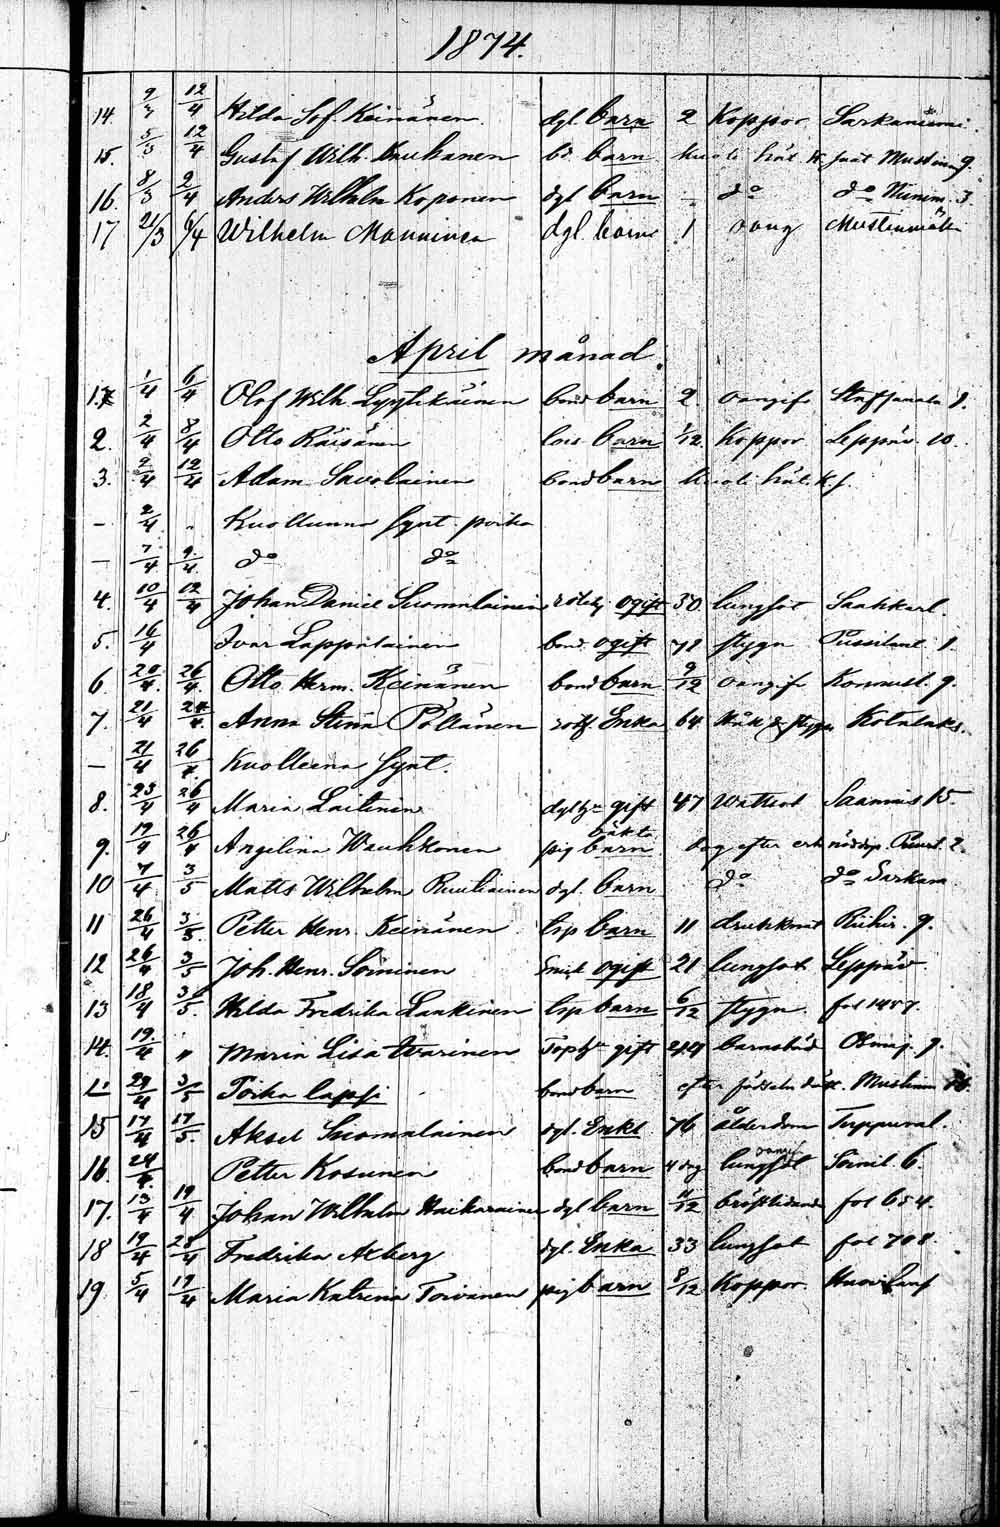 1874.
14. 9/3 12/4 Hilda Sof. Keinänen dgl. barn 2 Koppor Sarkaniemi.
15. 5/3 12/4 Gustaf Wilh. Kauhanen bd. barn Kuoli hät. K.
16. 8/3 2/4 Anders Wilhelm Koponen dgl barn do do Niinim. 3.
17 21/3 6/4 Wilhelm Manninen dgl. barn 1 Mustinmäki
April månad.
1. 1/4 6/4 Olof Wilh. Lyytikäinen bond barn 2 oangifv
2. 2/4 8/4 Otto Räisänen lois barn 1/12 Koppor Leppäv. 10.
3. 2/4 12/4 Adam Savolainen bond barn Kuoli hät. K.
— 2/4 " Kuolluna synt. poika
— 7/4 9/4 do do
4. 10/4 12/4 Johan Daniel Suomalainen ogift 30 lungsot Saahkarl.
5. 16/4 Ivar Lappalainen bond. ogift 71 stygn
6. 20/4 26/4 Otto Herm. Keinänen bond barn 9/12 oangifv 9.
7. 21/4 24/4 Anna Stina Pöllänen rotf. Enka 64 Håll & stygn Kotalaks.
— 21/4 26/4 Kuolleena synt.
8. 23/4 26/4 Maria Laitinen gift 47 Wattsot Saamais 15.
9. 19/4 26/4 Angelina Wauhkonen pig oäkta barn dog efter erh. nöddop. 2.
10 7/4 3/5 Matts Wilhelm Ruuttiainen dgl. barn do do Sarkam
11 26/4 3/5 Petter Henr. Keinänen trp barn 11 drunknat Riihir. 9.
12 26/4 3/5 Joh. Henr. Soininen ogift 21 lungsot Leppäv.
13 18/4 3/5 Hilda Fredrika Laakinen trp barn 6/12 stygn. fol 1487.
14. 19/4 " Maria Lisa Warinen gift barnsbörd 9.
29/4 3/5 Poika lapsi bond barn efter födseln dött. Mustinm
15 17/4 17/5 Aksel Suomalainen dgl. Enkl 76 ålderdom Timpurval.
16. 24/4 Petter Kosunen bond barn 4 dag lungsot oangif Soinil. 6.
17. 13/4 19/4 Johan Wilhelm Haikarainen dgl barn 11/12 bröstlidande fol 654.
18 19/4 28/4 Fredrika Åkberg dgl. Enka 33 lungsot fol 708
19. 5/4 19/4 Maria Katrina Toivanen pig barn 8/12 Koppor.